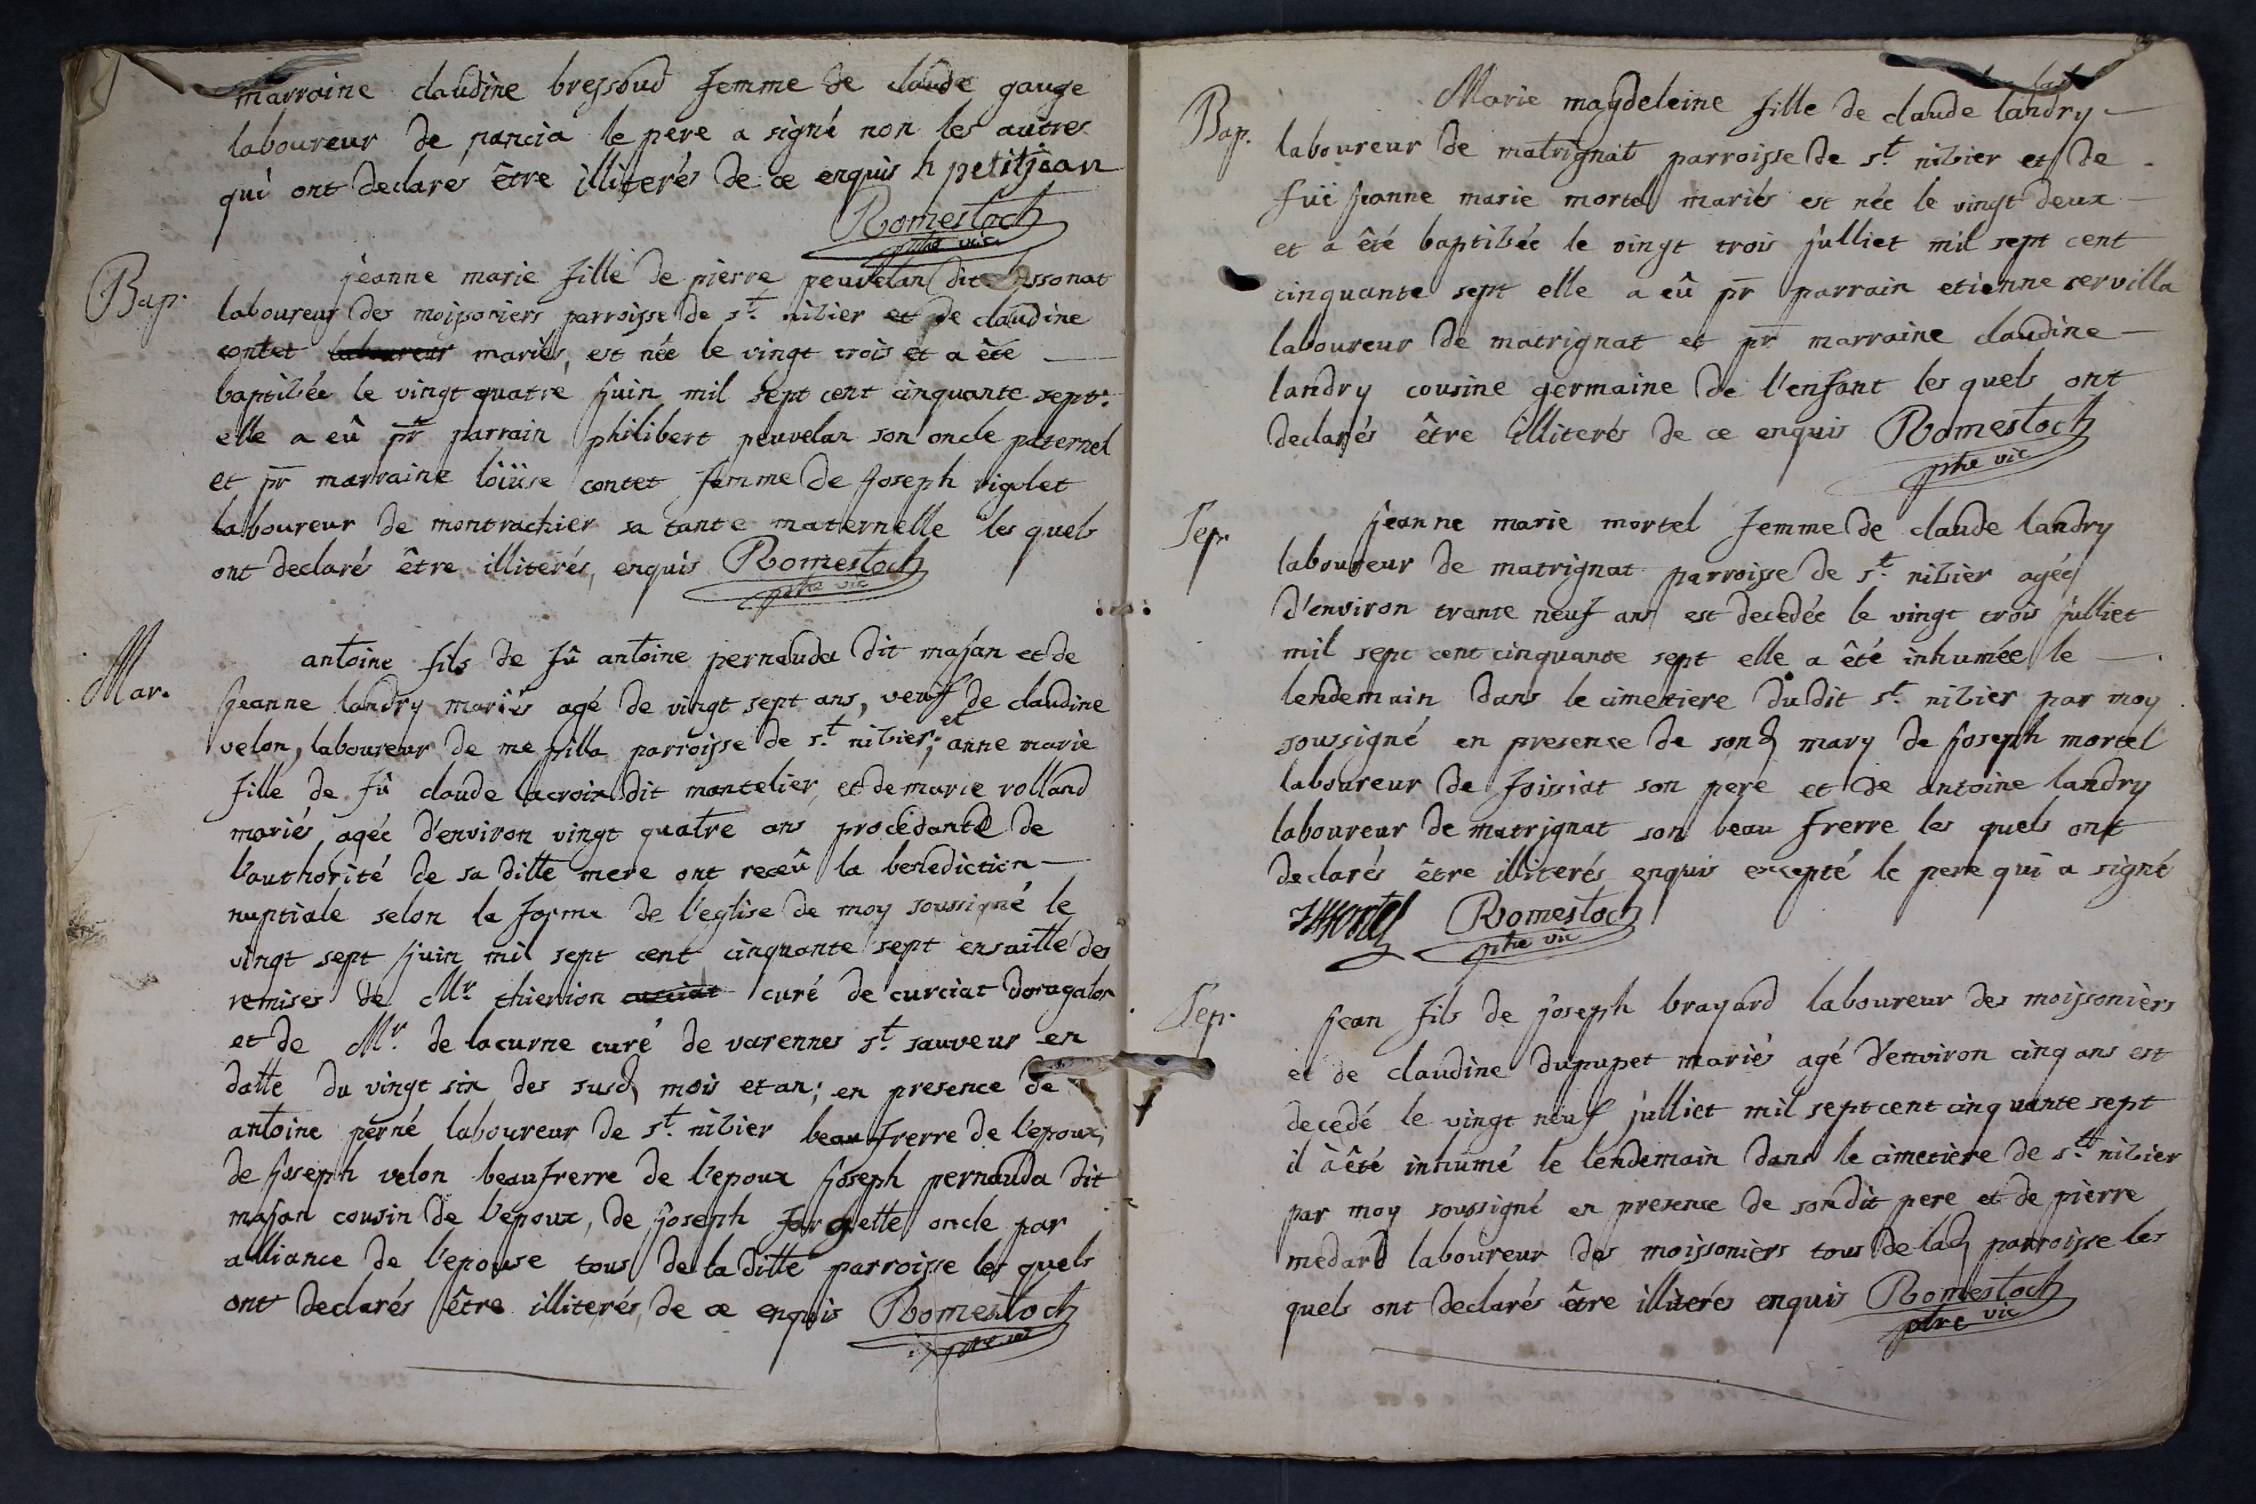 marraine claudine bressoud femme de claude gauge
laboureur de pancia le pere a signé non les autres
qui ont declarés être illiterés de ce enquis h petitjean
Romestoch
ptre vic
Bap.
jeanne marie fille de pierre peuvelan dit Assonat
laboureur des moissoniers parroisse de st. nizier et de claudine
contet laboureur mariés, est née le vingt trois et a été
baptisée le vingt quatre juin mil sept cent cinquante sept.
elle a eû pr parrain philibert peuvelan son oncle paternel
et pr marraine loüise contet femme de joseph rigolet
laboureur de montrachier sa tante maternelle les quels
ont declarés être illiterés, enquis Romestoch
ptre vic
Mar.
antoine fils de fû antoine pernauda dit majan et de
jeanne landry mariés agé de vingt sept ans, veuf de claudine
velon, laboureur de me pilla parroisse de st. nizier; et anne marie
fille de fû claude lacroix dit montelier, et de marie rolland
mariés agée d'environ vingt quatre ans procedante de
l'authorité de sa ditte mere ont receû la benediction
nuptiale selon la forme de l'eglise de moy soussigné le
vingt sept juin mil sept cent cinquante sept ensuitte des
remises de Mr. thienion curciat curé de curciat dongalon
et de Mr. de lacurne curé de varennes st. sauveur en
datte du vingt six des susd mois et an; en presence de
antoine perné laboureur de st. nizier beau frerre de l'epoux,
de joseph velon beaufrerre de l'epoux joseph pernauda dit
majan cousin de l'epoux, de joseph forgette oncle par
alliance de l'epouse tous de la ditte parroisse les quels
ont declarés être illiterés, de ce enquis Romestoch
ptre vic
Bap.
Marie magdeleine fille de claude landry
laboureur de matrignat parroisse de st. nizier et de
fuë jeanne marie mortel mariés est née le vingt deux
et a été baptisée le vingt trois julliet mil sept cent
cinquante sept elle a eû pr parrain etienne servilla
laboureur de matrignat et pr marraine claudine
landry cousine germaine de l'enfant les quels ont
declarés être illiterés de ce enquis Romestoch
ptre vic
Sep.
jeanne marie mortel femme de claude landry
laboureur de matrignat parroisse de st. nizier agée
d'environ trante neuf ans est decedée le vingt trois julliet
mil sept cent cinquante sept elle a été inhumée le
lendemain dans le cimetiere du dit st. nizier par moy
soussigné en presence de sond mary de joseph mortel
laboureur de foissiat son pere et de antoine landry
laboureur de matrignat son beau frerre les quels ont
declarés être illiterés enquis excepté le pere qui a signé
J Mortel Romestoch
ptre vic
Sep.
jean fils de joseph brayard laboureur des moissoniers
et de claudine dupupet mariés agé d'environ cinq ans est
decedé le vingt neuf julliet mil sept cent cinquante sept
il à été inhumé le lendemain dans le cimetière de st. nizier
par moy soussigné en presence de son dit pere et de pierre
medard laboureur des moissoniers tous de lad parroisse les
quels ont declarés être illiterés enquis Romestoch
ptre vic